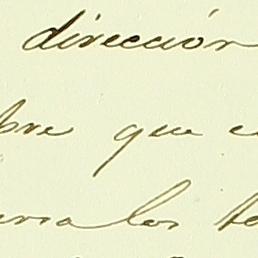 dirección
bre que e
los te